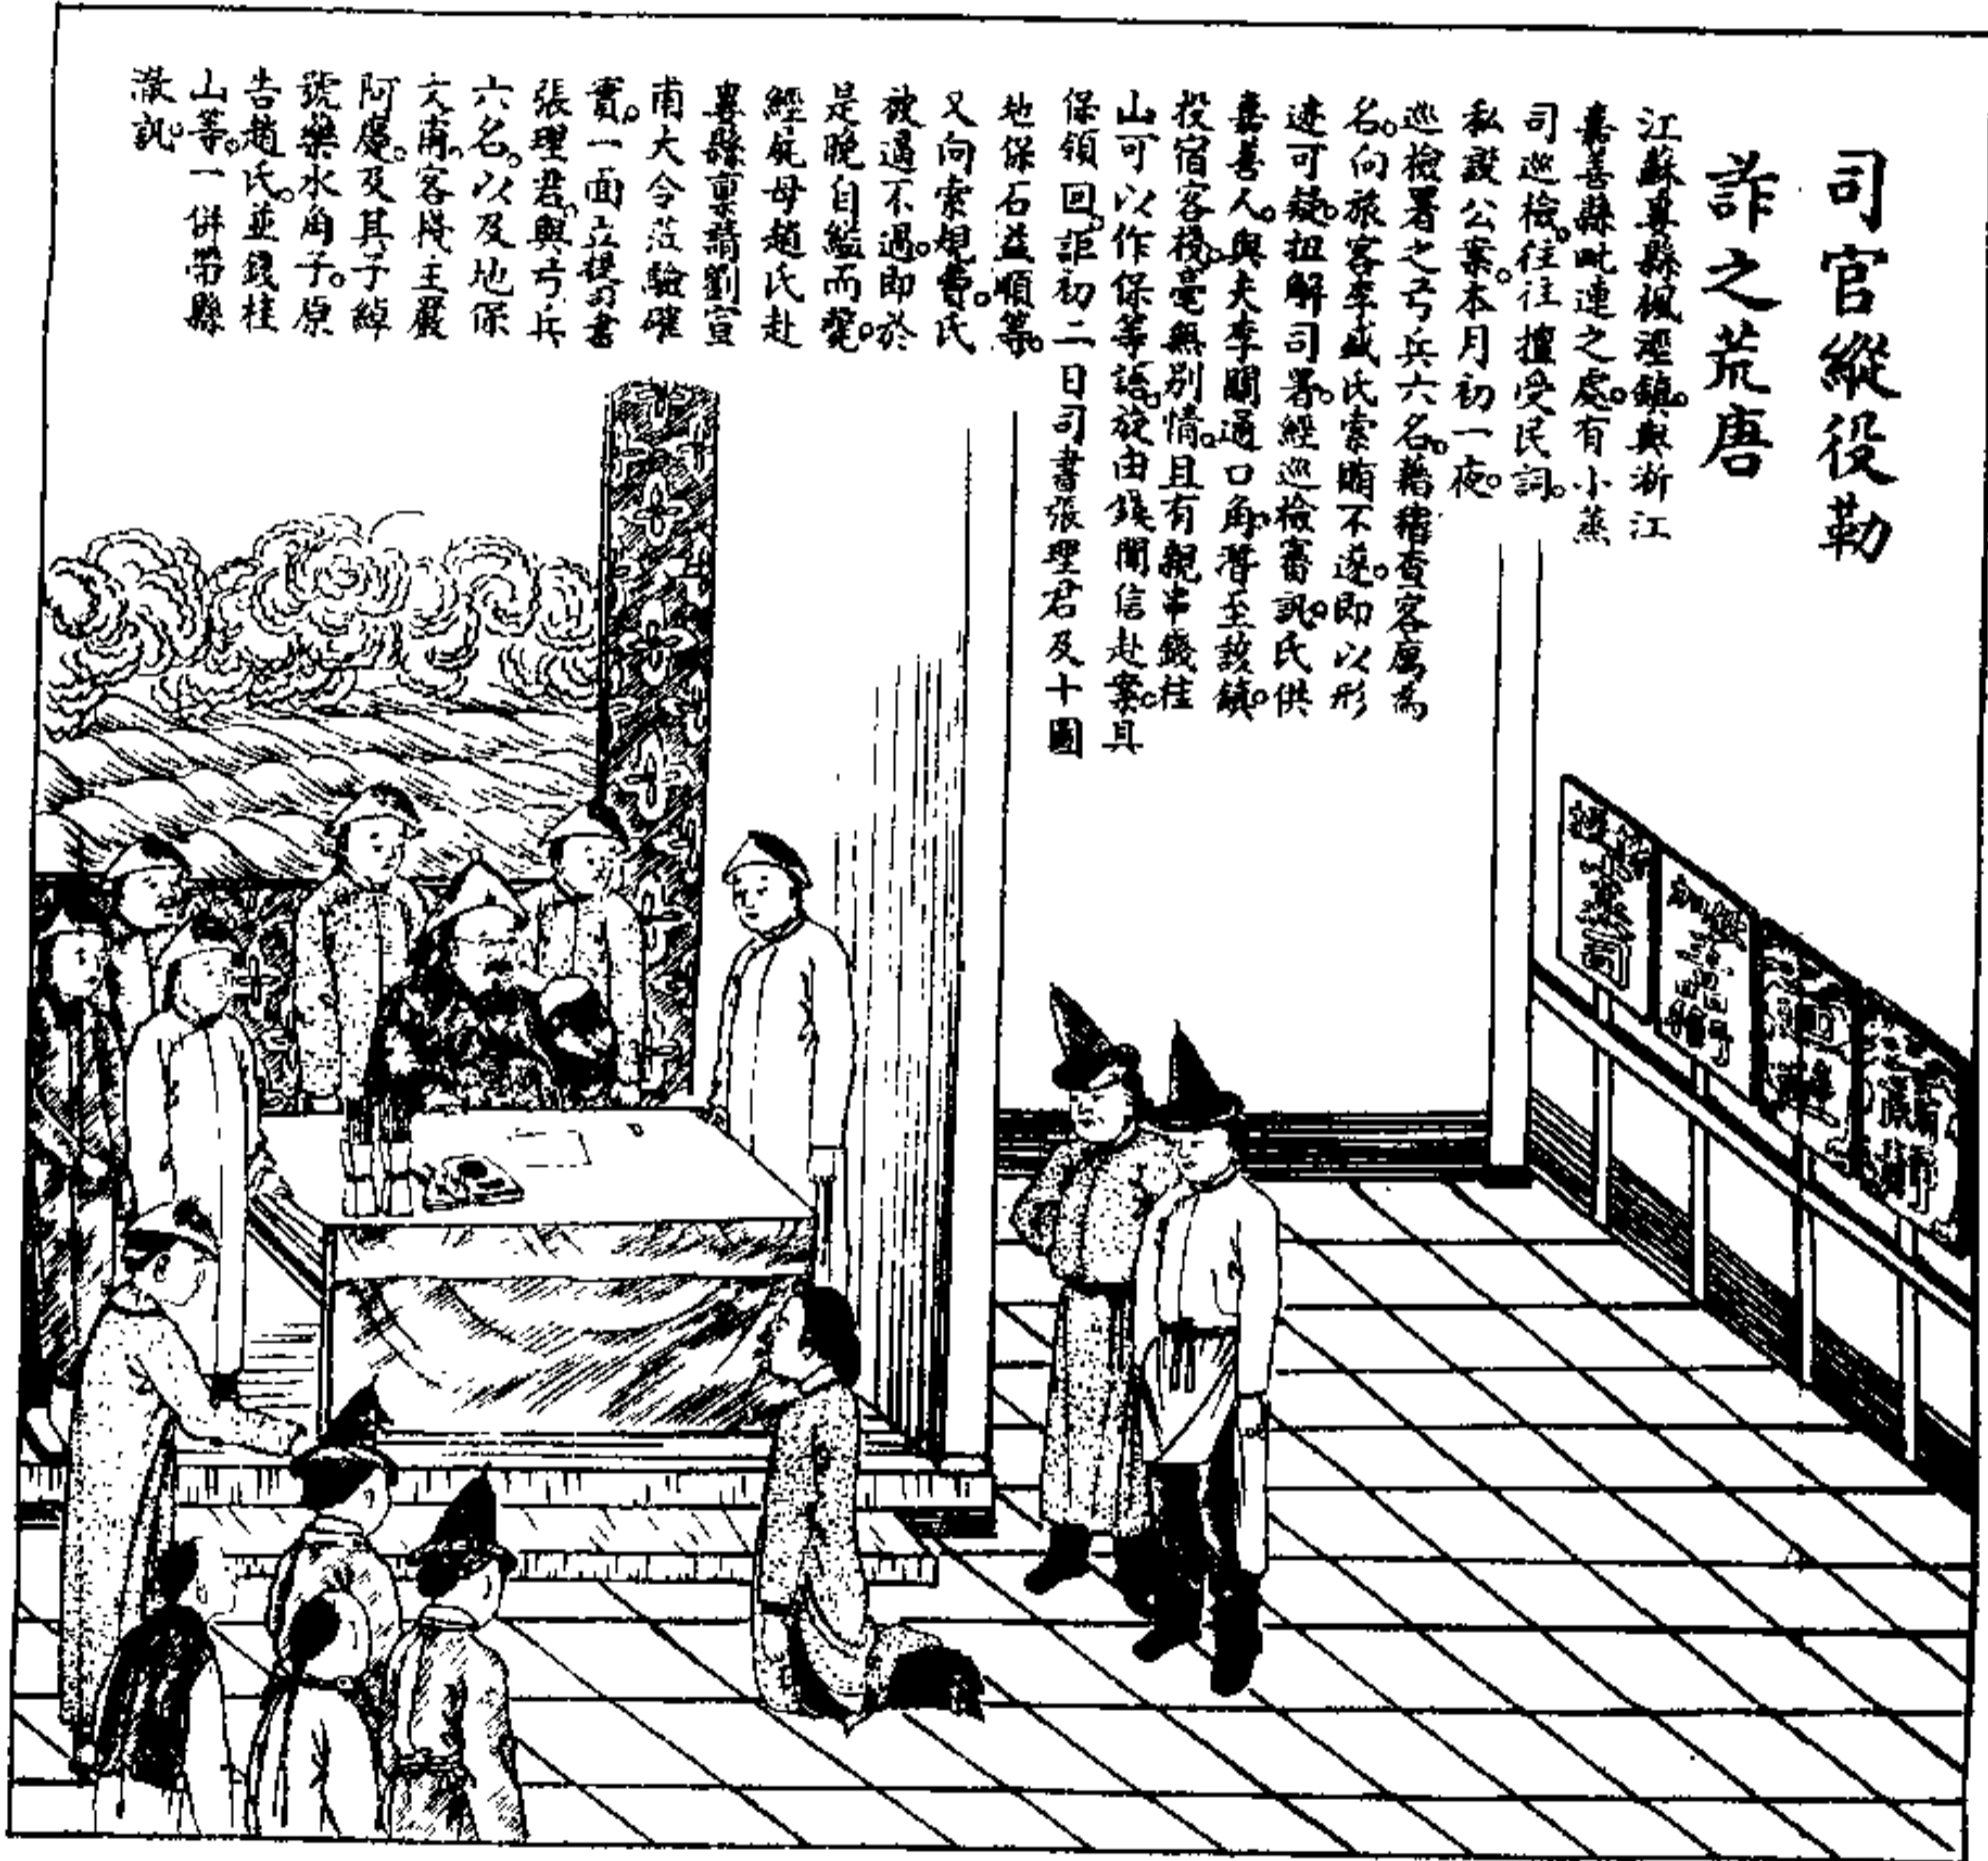 司官縱役勒
詐之荒唐
江蘇婁縣楓涇鎮。與浙江
嘉善縣毗連之處。有小蒸
司巡檢。往往擅受民詞。
私設公案。本月初一夜。
巡檢署之弓兵六名。藉稽查客寓為
名。向旅客李戚氏索賄不遂。即以形
迹可疑。扭解司署。經巡檢審訊。氏供
嘉善人。與夫李關通口角。潛至該鎮。
投宿客棧。毫無別情。且有親串錢桂
山可以作保等語。旋由錢聞信赴案。具
保領回。詎初二日司書張理君及十圖
地保石益順等。
又向索規費。氏
被逼不過。即於
是晚自縊而斃。
經屍母趙氏赴
婁縣稟請劉宣
甫大令蒞驗確
實。一面立提司書
張理君。與弓兵
六名。以及地保
文甫。客棧主嚴
阿慶。及其子綽
號樂水角子。原
告趙氏。並錢桂
山等。一併帶縣
澈訊。
小蒸司